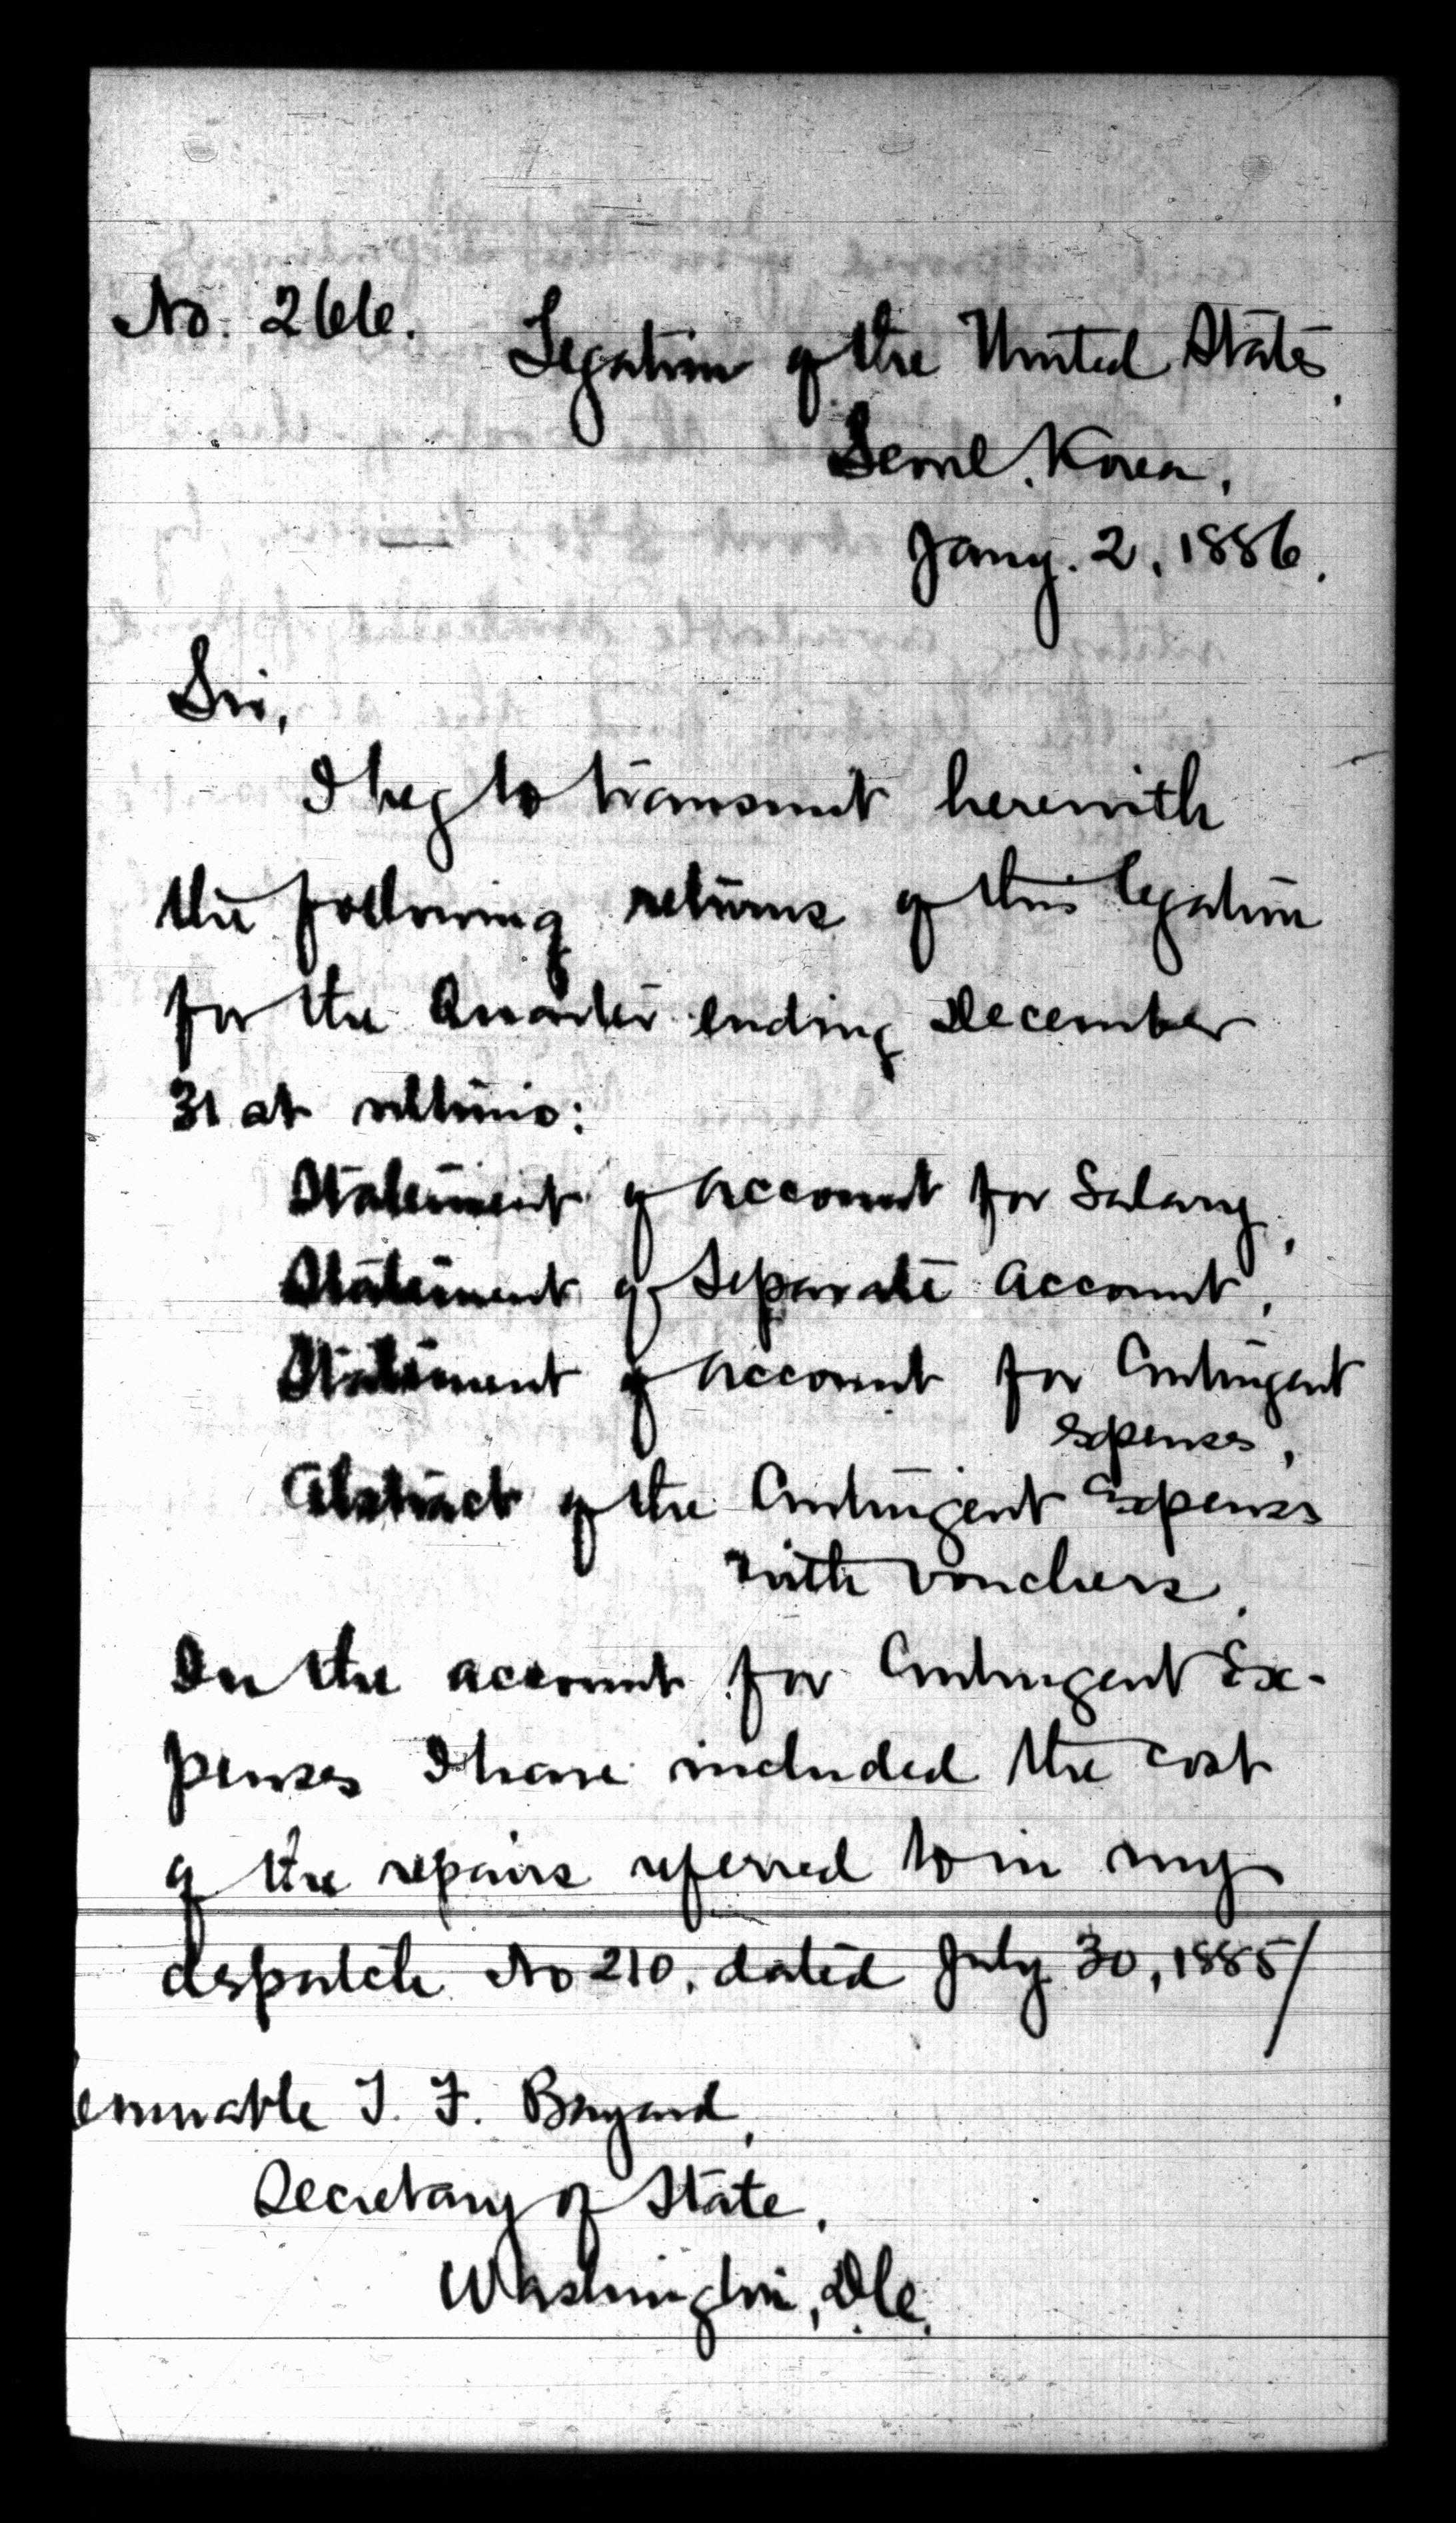 No. 266.
Legation of the United States,
Seoul, Korea,
Jany. 2, 1886.
Sir,
I beg to transmit herewith
the following returns of this legation
for the Quarter ending December
31 at ultimo:
Statement of Account for Salary,
Statement of Separate Account,
Statement of Account for Contingent
Expenses,
Abstract of the Contingent Expenses
with vouchers.
In the account for Contingent Ex-
penses I have included the cost
of the repairs referred to in my
dispatch No 210, dated July 30, 1885/
T. F. Bayard,
Secretary of State,
Washington, D.C.